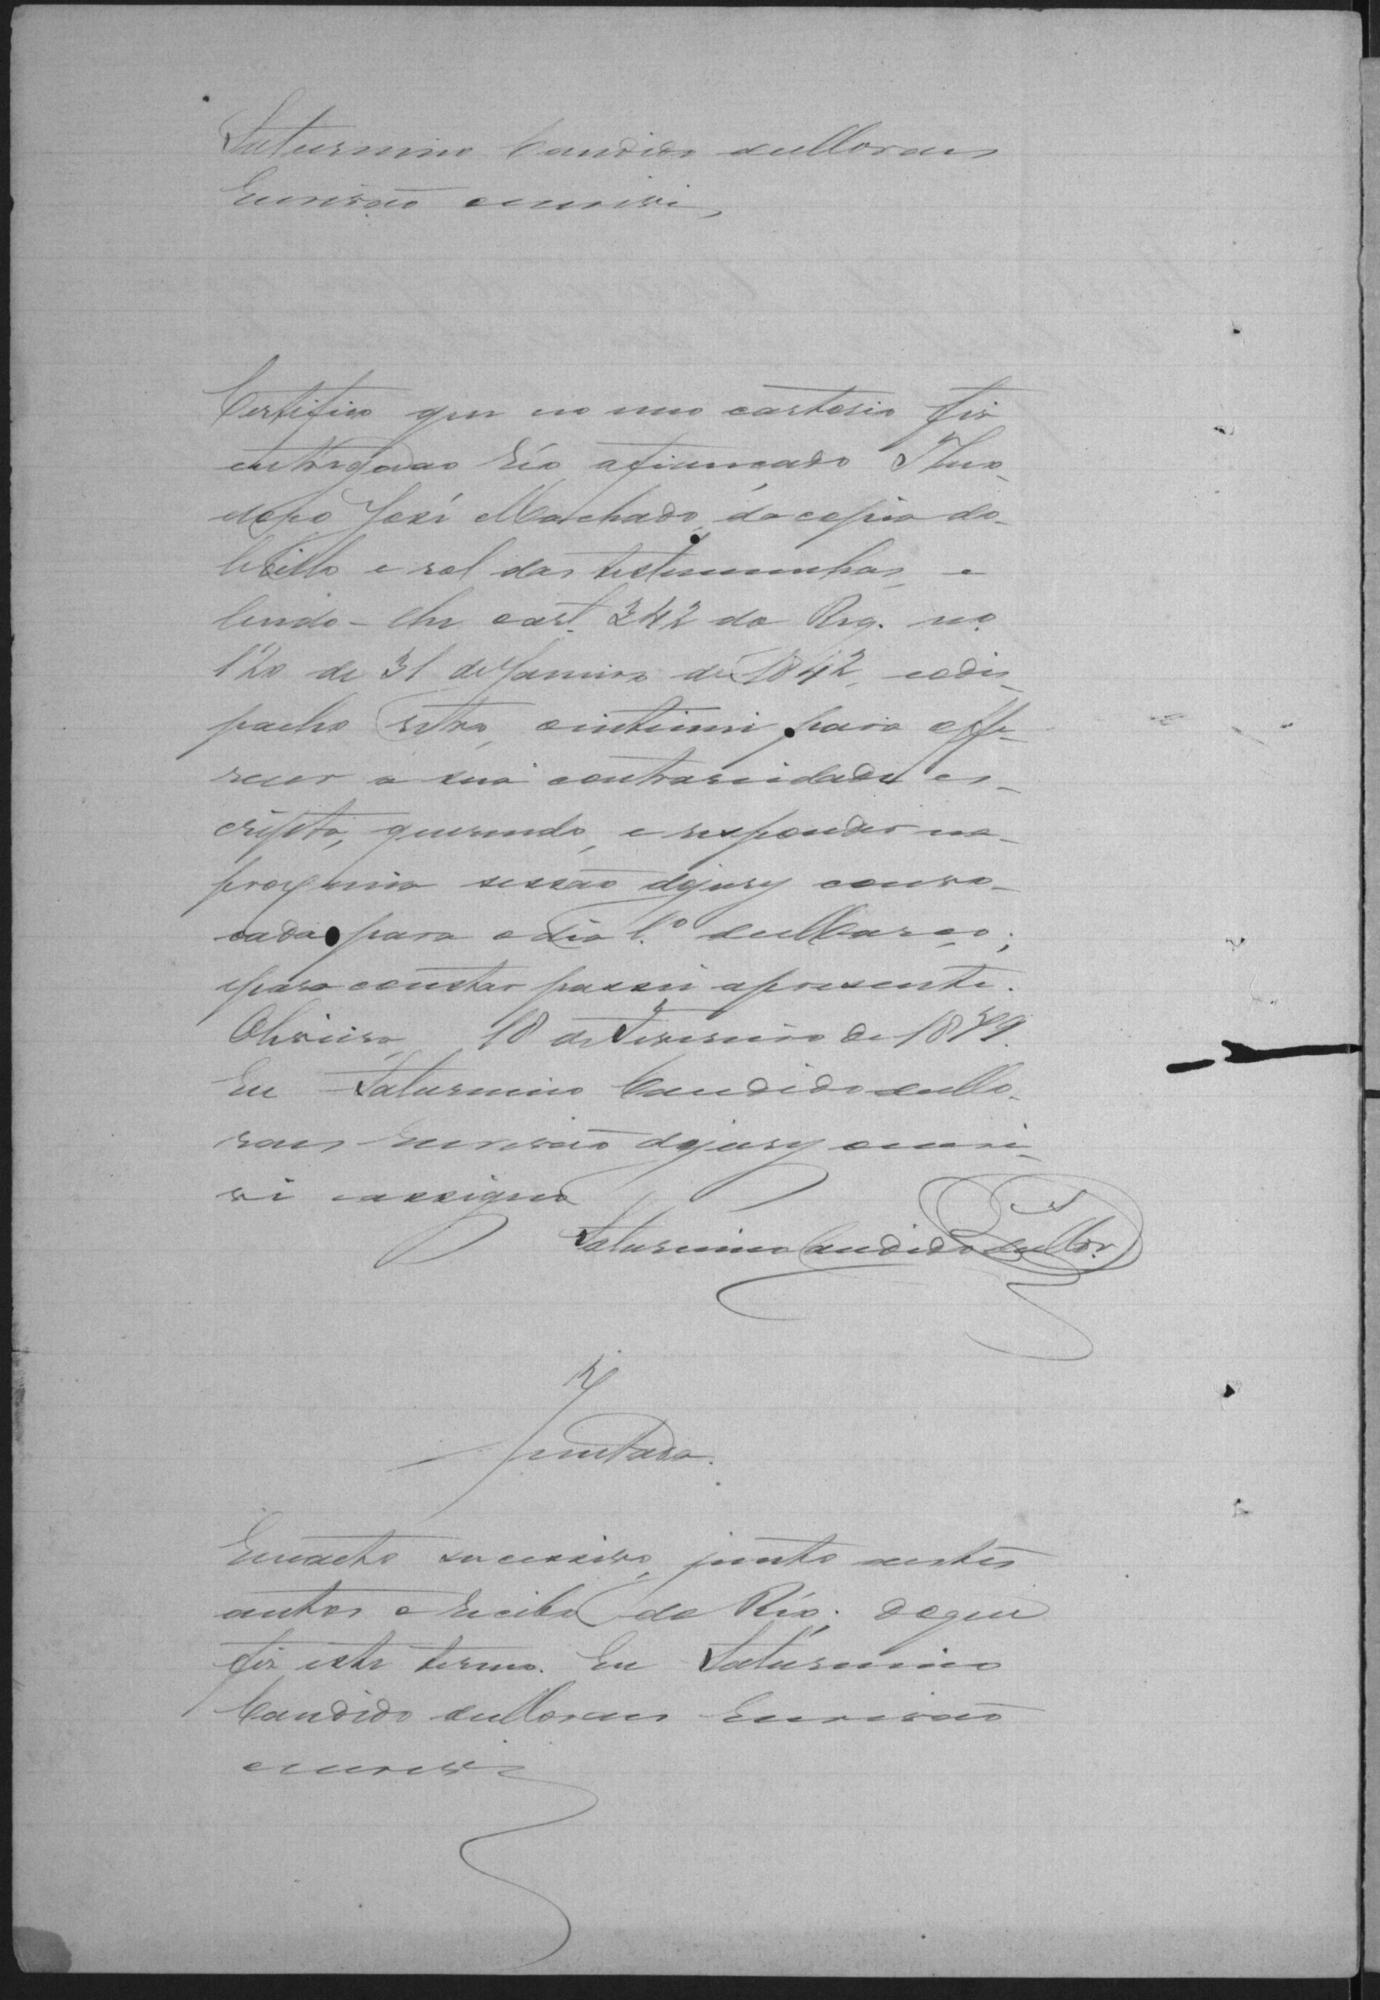 Saturnino Candido de Moraes
Escrivão o escrivi,
Certifico que no meu cartorio fiz
entrega ao Réo afiançado Theo-
doro José Machado, da copia do
libello e rol das testemunhas, e
lendo-lhe o art. 342 do Reg. no
120 de 31 de Janeiro de 1842, e o des-
pacho retro, o intimei para offe-
recer a sua contrariedade es-
cripta, querendo, e responder na
proxima sessão do jury convo-
cada para o dia 1.º de Março;
e para constar passei a presente.
Oliveira, 18 de Fevereiro de 1889.
Eu Saturnino Candido de Mo-
raes Escrivão do jury o escri-
vi e assigno
Saturnino Candido de Mor.
Juntada.
Em acto successivo, junto a estes
autos o recibo do Réo; do que
fiz este termo. Eu Saturnino
Candido de Moraes Escrivão
o escrevi